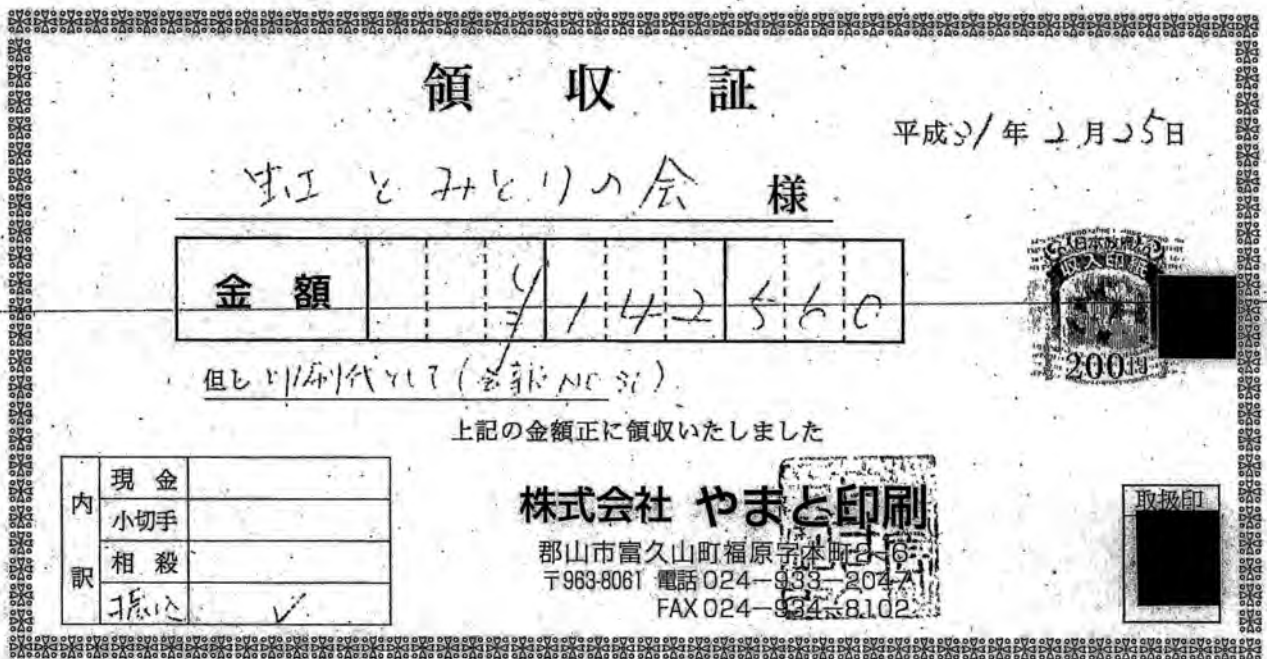 領収証
平成31年2月25日
虹とみどりの会 様
金額 ¥142560
但し 印刷代として(会報No.31)
上記の金額正に領収いたしました
日本政府
収入印紙
200円
内訳
現金
小切手
相殺
振込 ✓
株式会社 やまと印刷
郡山市富久山町福原字本町2-6
〒963-8061 電話 024-933-2047
FAX 024-934-8102
取扱印